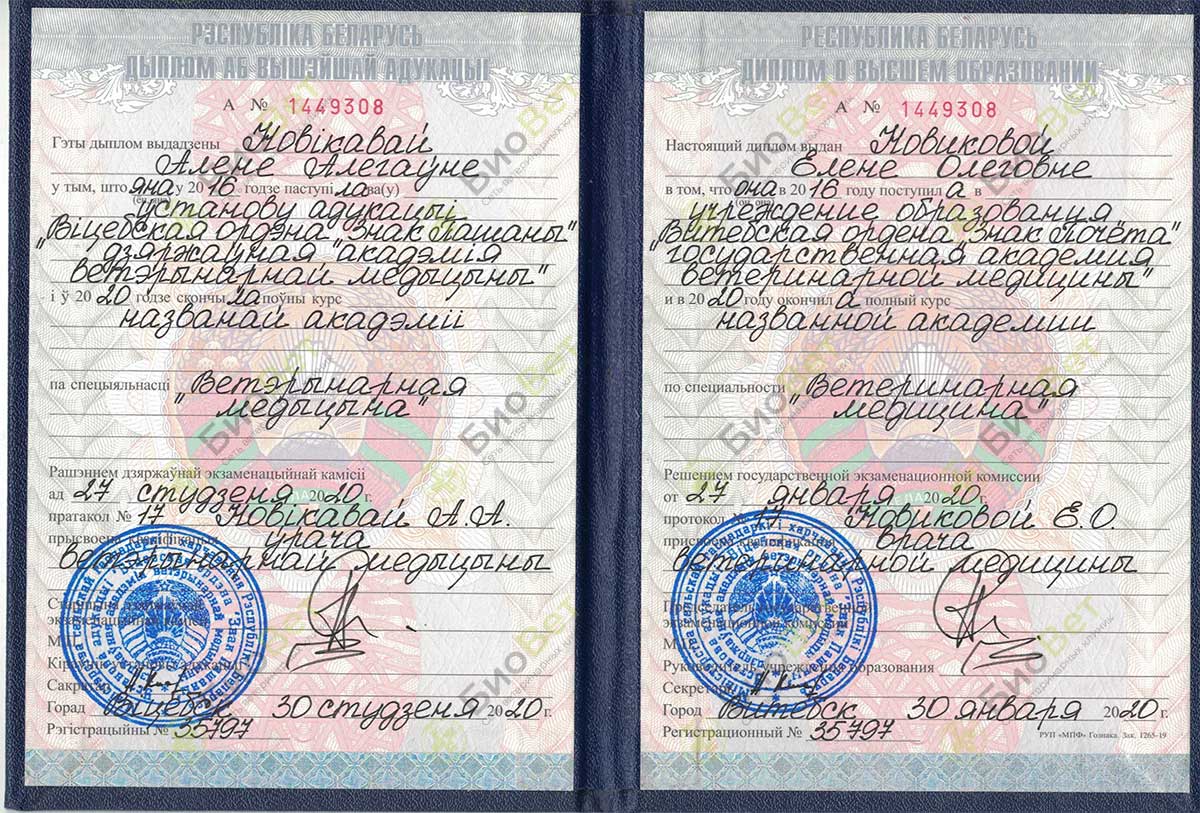 РЭСПУБЛІКА БЕЛАРУСЬ
ДЫПЛОМ АБ ВЫШЭЙШАЙ АДУКАЦЫІ
А № 1449308
Гэты дыплом выдадзены Новікавай
Алене Алегаўне
у тым, што яна у 2016 годзе паступіла ва(у)
установу адукацыі
"Віцебская ордэна "Знак Пашаны"
дзяржаўная акадэмія
ветэрынарнай медыцыны"
і ў 2020 годзе скончыла поўны курс
названай акадэміі
па спецыяльнасці "Ветэрынарная
медыцына"
Рашэннем дзяржаўнай экзаменацыйнай камісіі
ад 27 студзеня 2020 г.
пратакол № 17 Новікавай А.А.
прысвоена кваліфікацыя урача
ветэрынарнай медыцыны
Старшыня дзяржаўнай
экзаменацыйнай камісіі
Кіраўнік установы адукацыі
Сакратар
Горад Віцебск 30 студзеня 2020 г.
Рэгістрацыйны № 35797
РЕСПУБЛИКА БЕЛАРУСЬ
ДИПЛОМ О ВЫСШЕМ ОБРАЗОВАНИИ
А № 1449308
Настоящий диплом выдан Новиковой
Елене Олеговне
в том, что она в 2016 году поступила в
учреждение образования
"Витебская ордена "Знак Почёта"
государственная академия
ветеринарной медицины"
и в 2020 году окончила полный курс
названной академии
по специальности "Ветеринарная
медицина"
Решением государственной экзаменационной комиссии
от 27 января 2020 г.
протокол № 17 Новиковой Е.О.
присвоена квалификация врача
ветеринарной медицины
Председатель государственной
экзаменационной комиссии
Руководитель учреждения образования
Секретарь
Город Витебск 30 января 2020 г.
Регистрационный № 35797
РУП «МПФ» Гознака. Зак. 1265-19
БиоВет